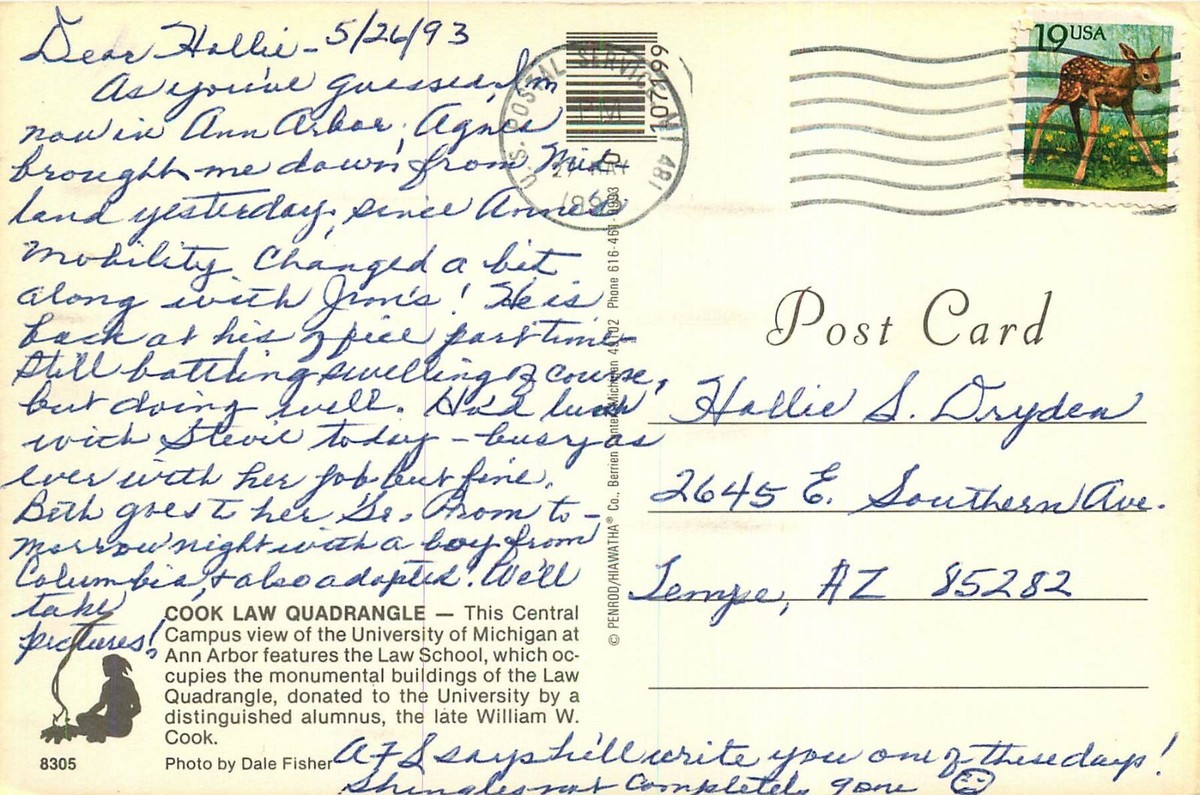 Dear Hallie - 5/26/93
As you've guessed, I'm
now in Ann Arbor, Agnes
brought me down from Mid-
land yesterday, since Anne's
mobility changed a bit
along with Jim's! He is
back at his office part time -
still battling swelling of course,
but doing well. Had lunch
with Stevie today - busy as
ever with her job but fine.
Beth goes to her Sr. Prom to-
morrow night with a boy from
Columbia, & also adopted! We'll
take
pictures!
COOK LAW QUADRANGLE — This Central
Campus view of the University of Michigan at
Ann Arbor features the Law School, which oc-
cupies the monumental buildings of the Law
Quadrangle, donated to the University by a
distinguished alumnus, the late William W.
Cook.
8305
Photo by Dale Fisher
A F S says he'll write you one of these days!
Shingles not completely gone
© PENROD/HIAWATHA® Co., Berrien Center, Michigan 49102 Phone 616-461-6993
U.S. POSTAL SERVICE MI 481
PM
MAY
1993
1072-99
19 USA
Post Card
Hallie S. Dryden
2645 E. Southern Ave.
Tempe, AZ 85282